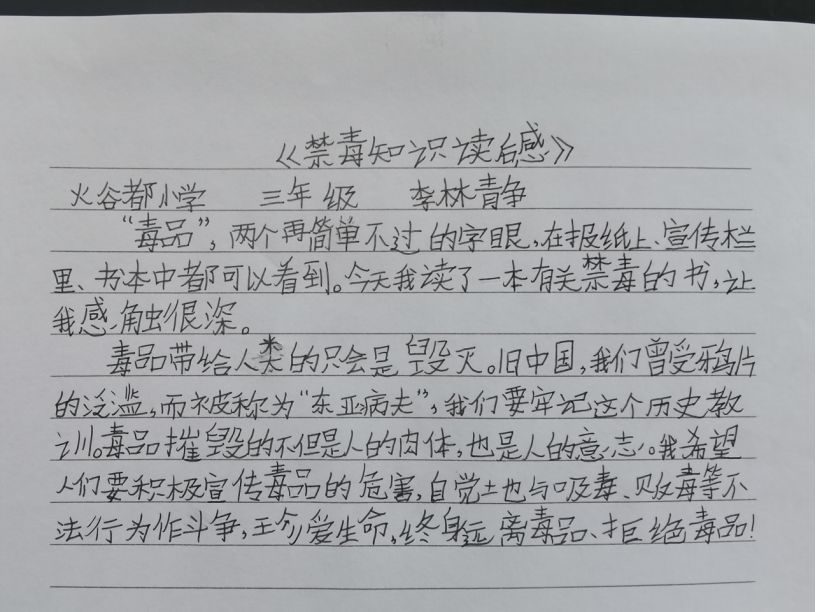 《禁毒知识读后感》
火谷都小学 三年级 李林青争
“毒品”,两个再简单不过的字眼,在报纸上、宣传栏
里、书本中都可以看到。今天我读了一本有关禁毒的书,让
我感触很深。
毒品带给人类的只会是毁灭。旧中国,我们曾受鸦片
的泛滥,而被称为“东亚病夫”,我们要牢记这个历史教
训。毒品摧毁的不但是人的肉体,也是人的意志。我希望
人们要积极宣传毒品的危害,自觉地与吸毒、贩毒等不
法行为作斗争,珍爱生命,终身远离毒品、拒绝毒品!